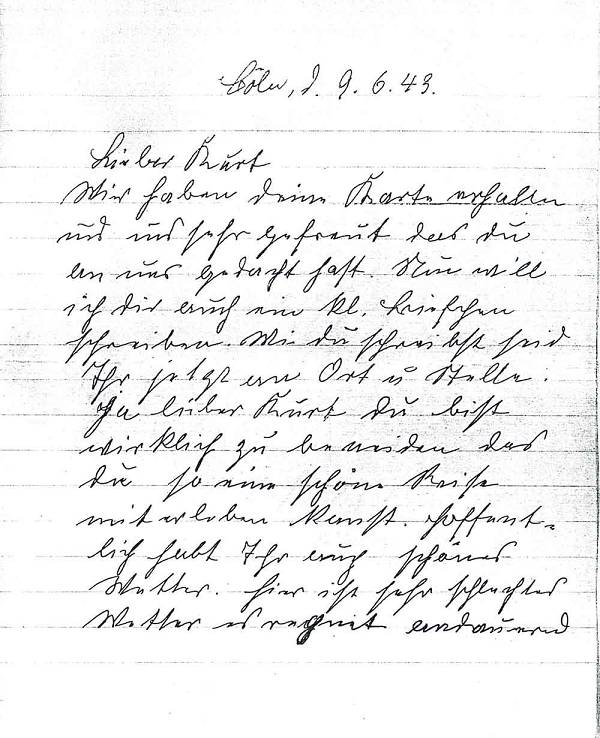 Cöln, d. 9.6.43.
Lieber Kurt
Wir haben deine Karte erhalten
und uns sehr gefreut das du
an uns gedacht hast. Nun will
ich dir auch ein kl. Briefchen
schreiben. Wie du schreibst seid
Ihr jetzt an Ort u Stelle.
Ja lieber Kurt du bist
wirklich zu beneiden das
du so eine schöne Reise
miterleben kanst. Hoffent-
lich habt Ihr auch schönes
Wetter. Hier ist sehr schlechtes
Wetter es regnet andauernd